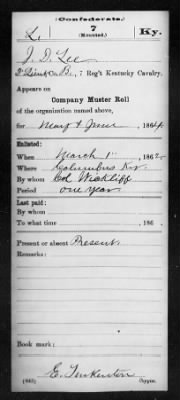 (Confederate.)
L. 7 Ky.
(Mounted.)
J. D. Lee
2 Lieut, Co. B, 7 Reg't Kentucky Cavalry.
Appears on
Company Muster Roll
of the organization named above,
for May & June, 1864.
Enlisted:
When March 1, 186
Where Columbus Ky.
By whom Col Wickliff
Period one year
Last paid:
By whom
To what time , 186 .
Present or absent Present
Remarks:
Book mark:
E. Tinkenton
(642) Copyist.